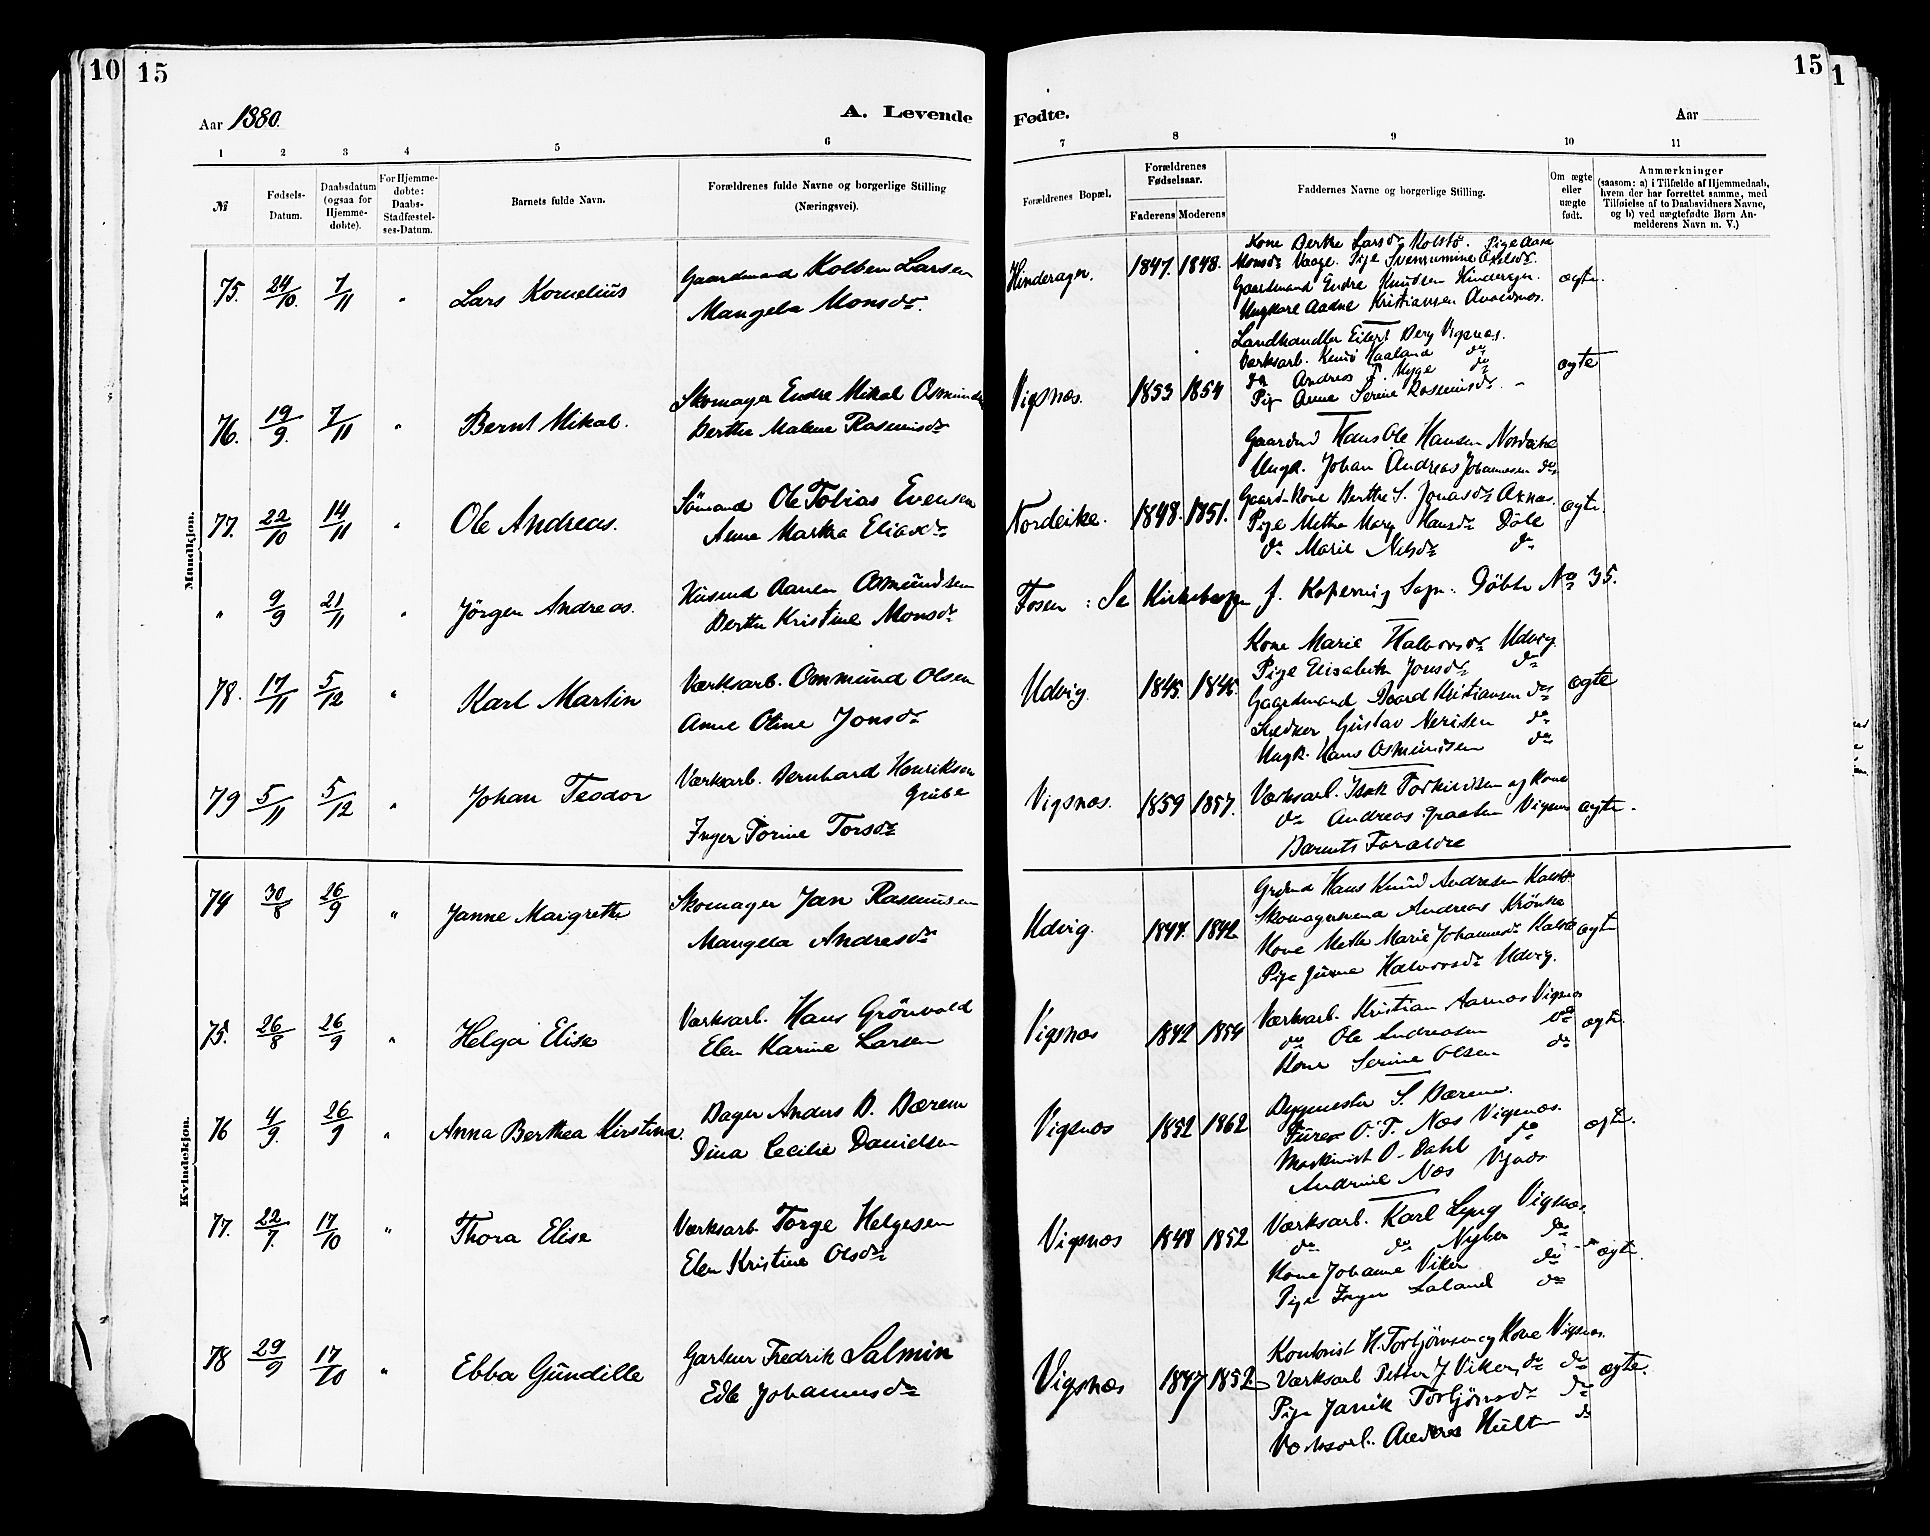 10 15
15 1
Aar 1880.
A. Levende
Fødte.
Aar
1 2 3 4 5 6
7 8 9 10 11
№
Fødsels-Datum.
Daabsdatum (ogsaa for Hjemme-døbte).
For Hjemme-døbte: Daabs-Stadfæstel-ses-Datum.
Barnets fulde Navn.
Forældrenes fulde Navne og borgerlige Stilling
(Næringsvei).
Forældrenes Bopæl.
Forældrenes Fødselsaar.
Faderens Moderens
Faddernes Navne og borgerlige Stilling.
Om ægte eller uægte født.
Anmærkninger
(saasom: a) i Tilfælde af Hjemmedaab, hvem der har forrettet samme, med Tilføielse af to Daabsvidners Navne, og b) ved uægtefødte Børn An-melderens Navn m. V.)
Mandkjøn.
75. 24/10. 7/11 " Lars Kornelius
Gaardmand Kolben Larsen
Mangela Monsdr.
Hinderager. 1847. 1848.
Kone Berthe Larsdr Kolstø. Pige Aase
Monsdr Vaage. Pige
Gaardmand Endre Knudsen Hinderager.
Ungkarl Aadne Kristiansen Avaldsnes.
ægte.
76. 19/9. 7/11 " Bernt Mikal.
Skomager Endre Mikal Osmunds
Berthe Malene Rasmusdr
Vigsnæs. 1853 1854
Landhandler Eilert Berg Vigsnæs.
Værksarb. Haaland do
do Andreas Myge do
Pige Anne Serine Rasmusdr "
ægte
77. 22/10 14/11 " Ole Andreas.
Sømand Ole Tobias Evensen
Anne Martha Eliasdr
Nordeike. 1848. 1851.
Gaardmd Hans Ole Hansen Nordeike
Ungk. Johan Andreas Johannesen do
Gaard-Kone Berthe S. Jonasdr Aknæs.
Pige Mette Mary Hansdr Døle
do Marie Nilsdr do
ægte.
" 9/9 21/11 " Jørgen Andreas.
Husmd Aanen Osmundsen
Berthe Kristine Monsdr
Fosen : Se Kirkebogen f. Kopervig Sogn: Døbte No 35.
78. 17/11 5/12 " Karl Martin
Værksarb. Ommund Olsen
Anne Oline Jonsdr
Udvig. 1845. 1846.
Kone Marie Halvorsdr Udvig
Pige Elisabeth Jonsdr do
Gaardmand Baard Kristiansen do
Snedker Gustav Nerisen do
Ungk. Hans Osmundsen do
ægte
79 5/11 5/12 " Johan Teodor
Værksarb. Bernhard Henriksen
Grube
Inger Torine Torsdr
Vigsnæs. 1859 1857.
Værksarb. Isak Torkildsen og Kone
do Andreas Graaten Vigsnæs
Barnets Forældre
ægte.
Kvindekjøn.
74 30/8 26/9 " Janne Margrethe
Skomager Jan Rasmusen
Mangela Andresdr
Udvig. 1844. 1842
Grdmd Hans Knud Andresen Kolstø
Skomagersvend Andreas
Kone Mette Marie Johannesdr Kalstø
Pige Halvorsdr Udvig.
ægte
75. 26/8 26/9 " Helga Elise
Værksarb. Hans Grönvold
Elen Karine Larsen
Vigsnæs 1842 1854
Værksarb. Kristian Aarnæs Vigsnæs
do Ole Andreasen do
Kone Serine Olsen do
ægte.
76 4/9. 26/9 " Anna Berthea Kirstina.
Bager Anders B. Bærem
Dina Cecilie Danielsen
Vigsnæs 1852 1862
Bygmester S. Bærem.
O. T. Næs Vigsnæs.
Maskinist O. Dahl do
Andrine Næs Vigsnæs
ægte.
77. 22/7. 17/10 " Thora Elise
Værksarb. Torge Helgesen
Elen Kristine Olsdr
Vigsnæs 1848 1852
Værksarb. Karl Lyng Vigsnæs.
do do Nyber do
Kone Johanne Viker do
Pige Inger Laland do
ægte.
78 29/9 17/10 " Ebba Gundille
Gartner Fredrik Salmin
Edle Johannesdr
Vigsnæs 1847 1852.
Kontorist H. Torbjörnsen og Kone Vigsnæs.
Værksarb Petter J Viker do do
Pige Janik Torbjörnsdr do
Værksarb. Anders Hult do
ægte.